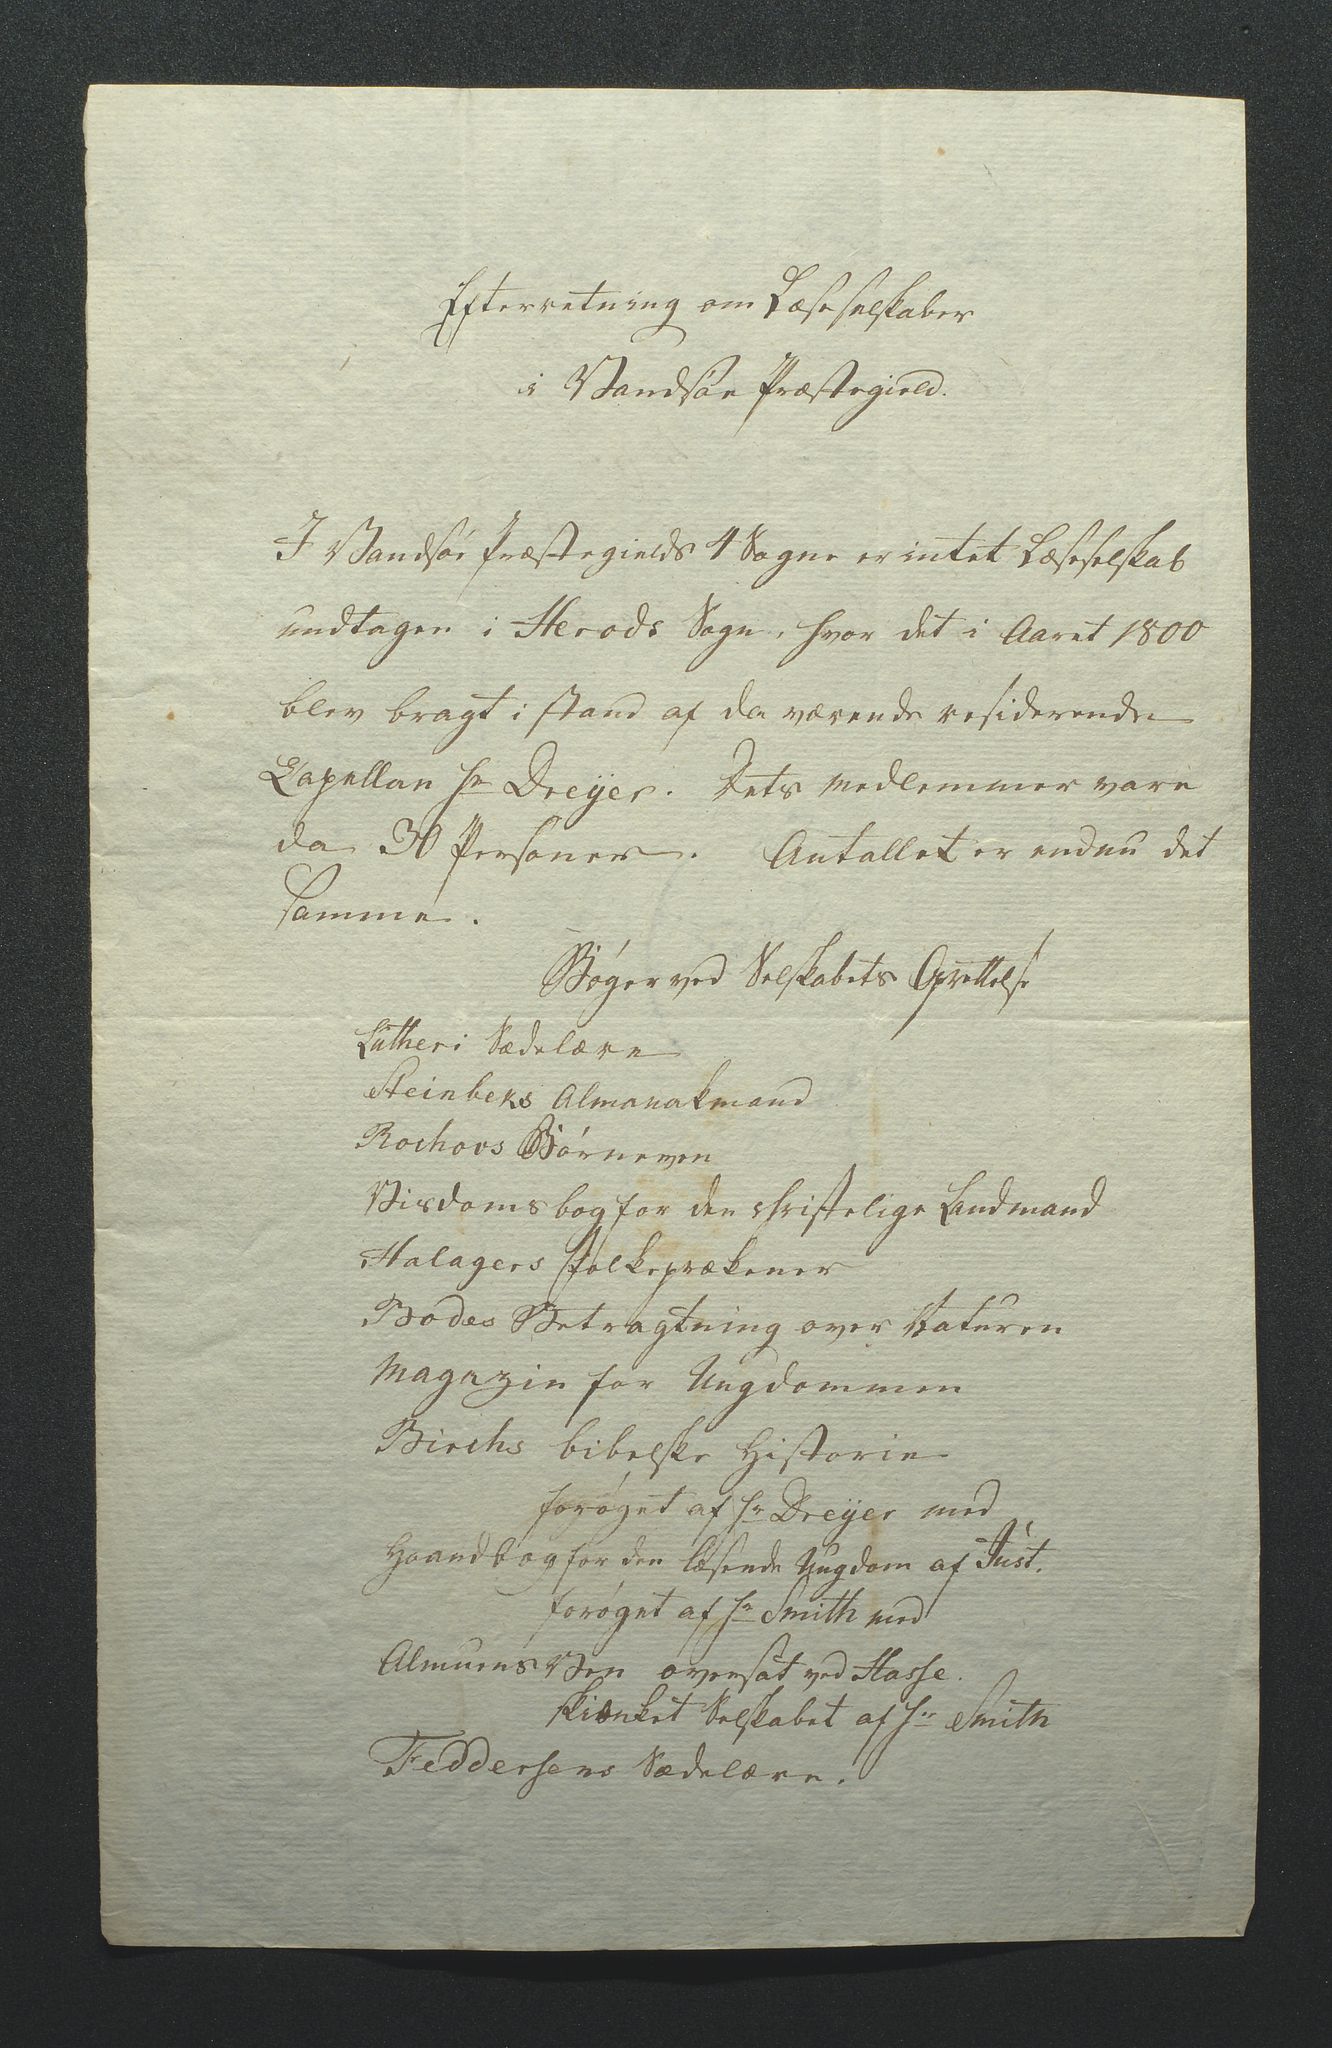 Efterretning om Læseselskaber
i Vandsøe Præstegield.
I Vandsøe Præstegields 4 Sogne er intet Læseselskab
undtagen i Herøds Sogn, hvor det i Aaret 1800
blev bragt i stand af da værende residerende
Capellan Hr Dreyer. Dets Medlemmer vare
da 30 Personer. Antallet er endnu det
samme.
Bøger ved Selskabets Oprettelse
Lutheri Sædelære
Steinbeks Almanakmand
Rochovs Børneven
Visdomsbog for den christelige Landmand
Halagers Folkeprækener
Bodes Betragtning over Naturen
Magazin for Ungdommen
Birchs bibelske Historie
forøget af Hr Dreyer med
Haandbog for den læsende Ungdom af Just.
forøget af Hr Smith med
Almuens Ven oversat ved Hasse.
skienket Selskabet af Hr Smith
Feddersens Sædelære.